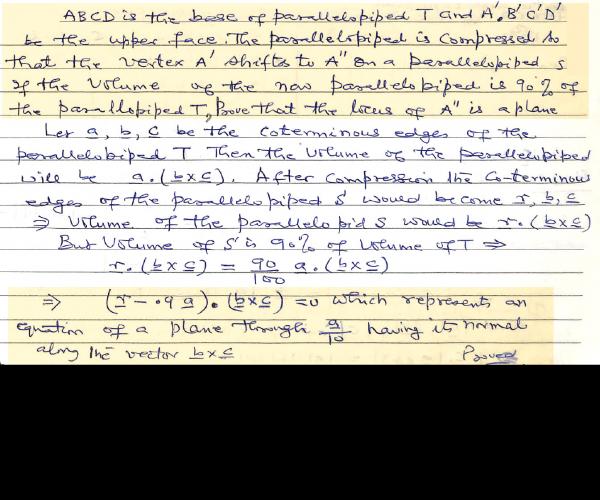 ABCD is the base of parallelopiped T and A', B' C' D'
be the upper face. The parallelopiped is compressed so
that the vertex A' shifts to A'' on a parallelopiped S
If the Volume of the new parallelopiped is 90% of
the parallopiped T, Prove that the locus of A'' is a plane
Let a, b, c be the coterminous edges of the
parallelopiped T Then the Volume of the parallelopiped
will be a.(b×c). After compression the Co-terminous
edges of the parallelopiped S would become r, b, c
⇒ Volume of the parallelopid S would be r.(b×c)
But Volume of S is 90% of Volume of T ⇒
r.(b×c) = 90/100 a.(b×c)
⇒ (r - .9 a).(b×c) =0 which represents an
equation of a plane through a/10 having its normal
along the vector b×c Proved